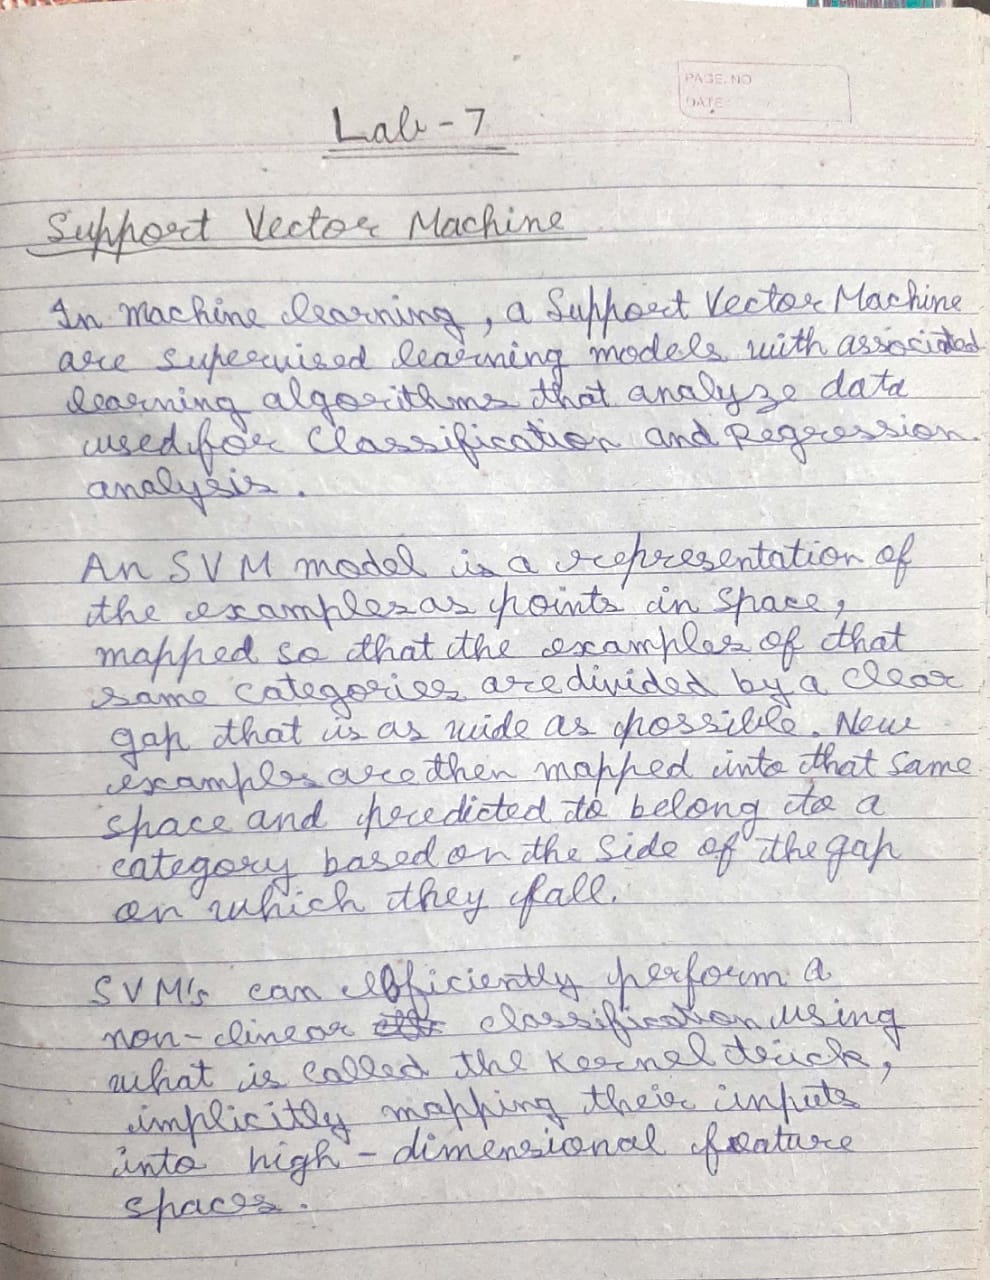 PAGE. NO
DATE:
Lab - 7
Support Vector Machine
In machine learning, a Support Vector Machine
are supervised learning models with associated
learning algorithms that analyze data
used for Classification and Regression.
analysis.
An SVM model is a representation of
the examples as points in space,
mapped so that the examples of that
same categories are divided by a clear
gap that is as wide as possible. New
examples are then mapped into that same
space and predicted to belong to a
category based on the side of the gap
on which they fall.
SVM's can efficiently perform a
non-linear classification using
what is called the Kernel trick,
implicitly mapping their inputs
into high - dimensional feature
spaces.